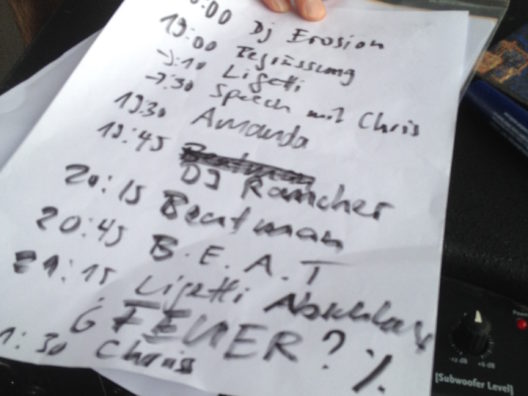 :00 DJ Erosion
19:00 Begrüssung
->:10 Ligetti
->:30 Speech mit Chris
19:30 Amanda
19:45
DJ Rancher
20:15 Beatman
20:45 B.E.A.T
21:15 Ligetti Abschluss
¿ FEUER? %
1:30 Chriss
[Subwoofer Level]